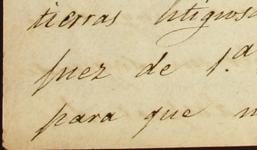 tierras litigios
juez de 1.ª
para que